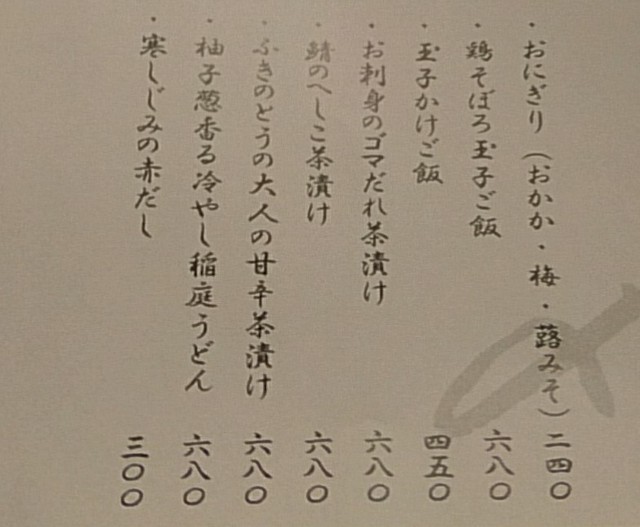 ・おにぎり（おかか・梅・蕗みそ）二四〇
・鶏そぼろ玉子ご飯 六八〇
・玉子かけご飯 四五〇
・お刺身のゴマだれ茶漬け 六八〇
・鯖のへしこ茶漬け 六八〇
・ふきのとうの大人の甘辛茶漬け 六八〇
・柚子葱香る冷やし稲庭うどん 六八〇
・寒しじみの赤だし 三〇〇